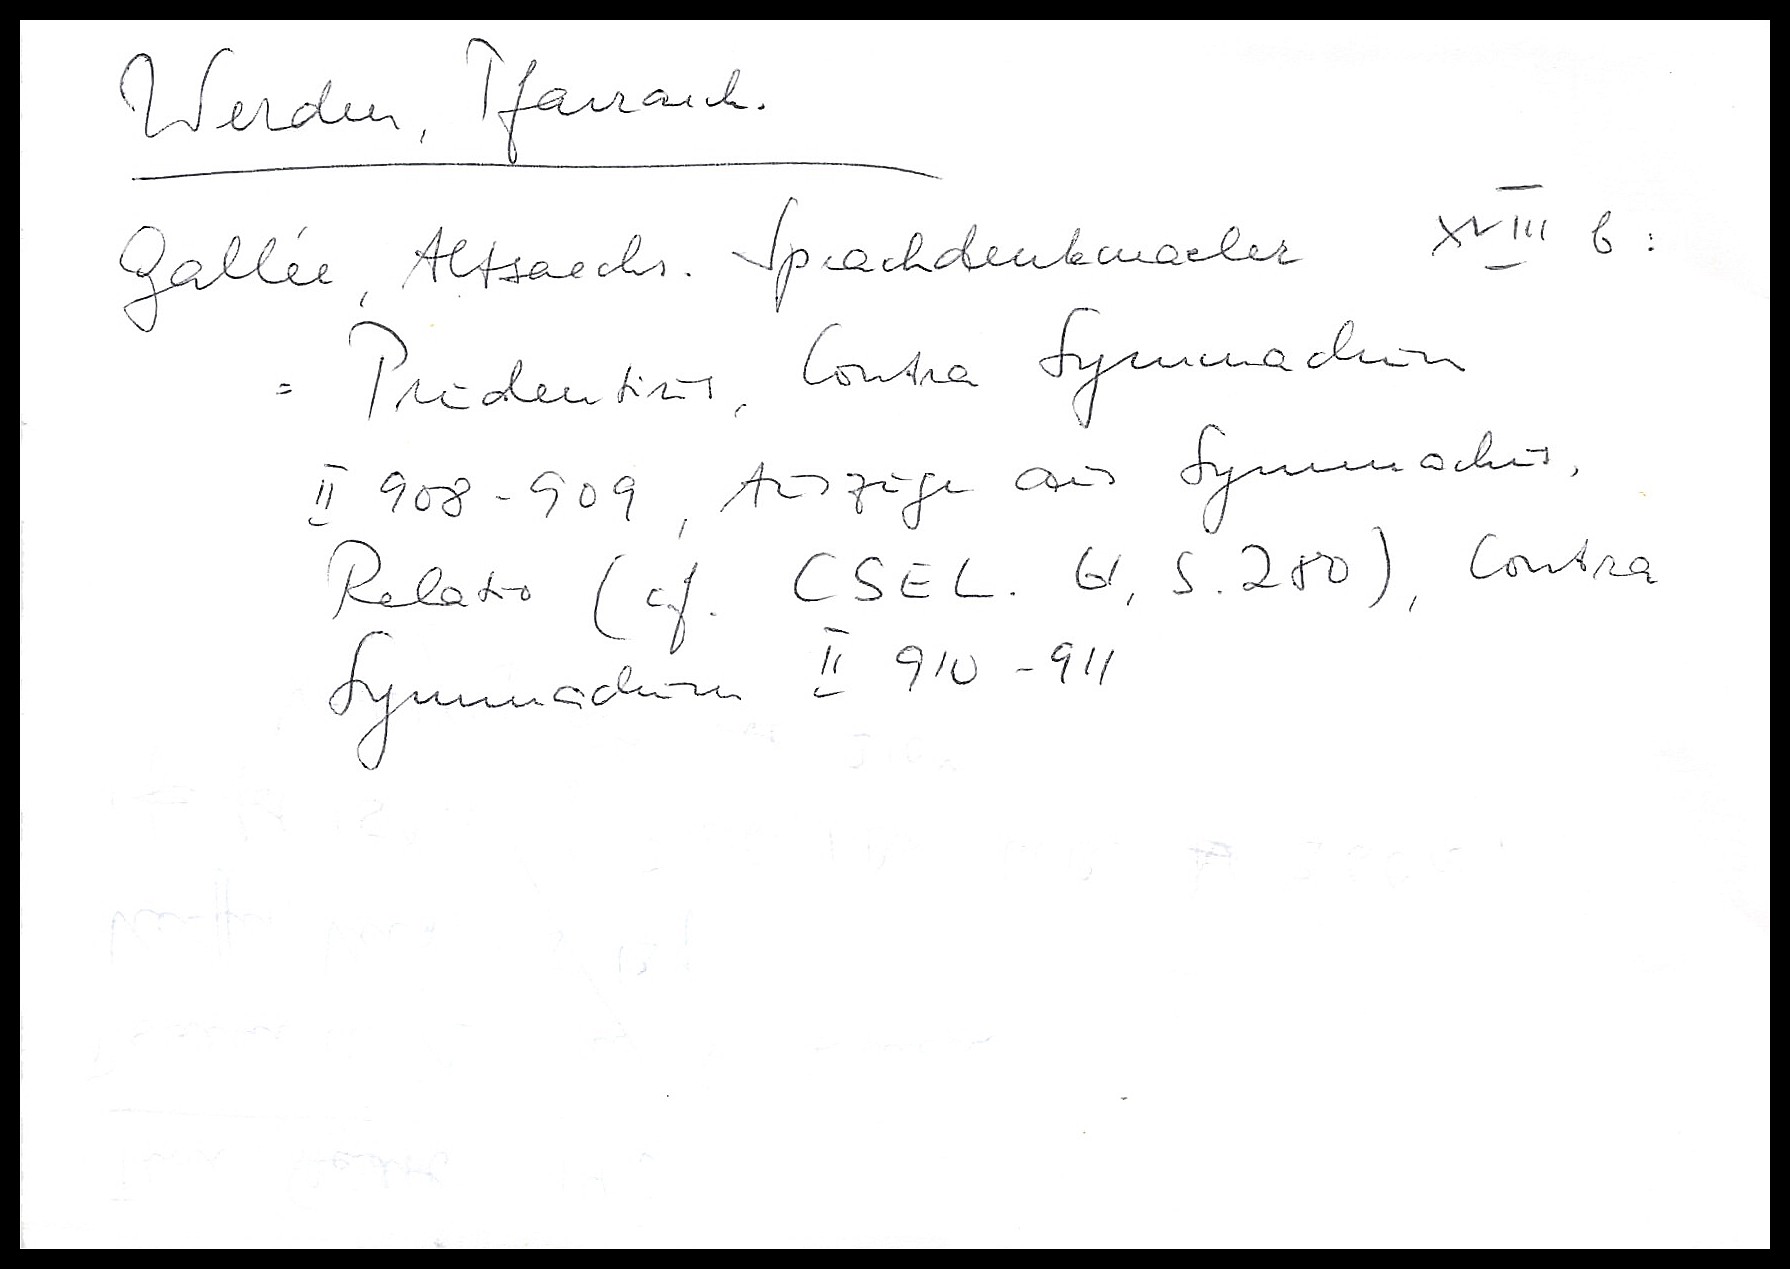 Werden, Pfarrarch.
Gallée, Altsaechs. Sprachdenkmaeler XVIII b:
= Prudentius, Contra Symmachum
II 908-909, Auszüge aus Symmachus,
Relatio (cf. CSEL. 61, S. 280), Contra
Symmachum II 910-911